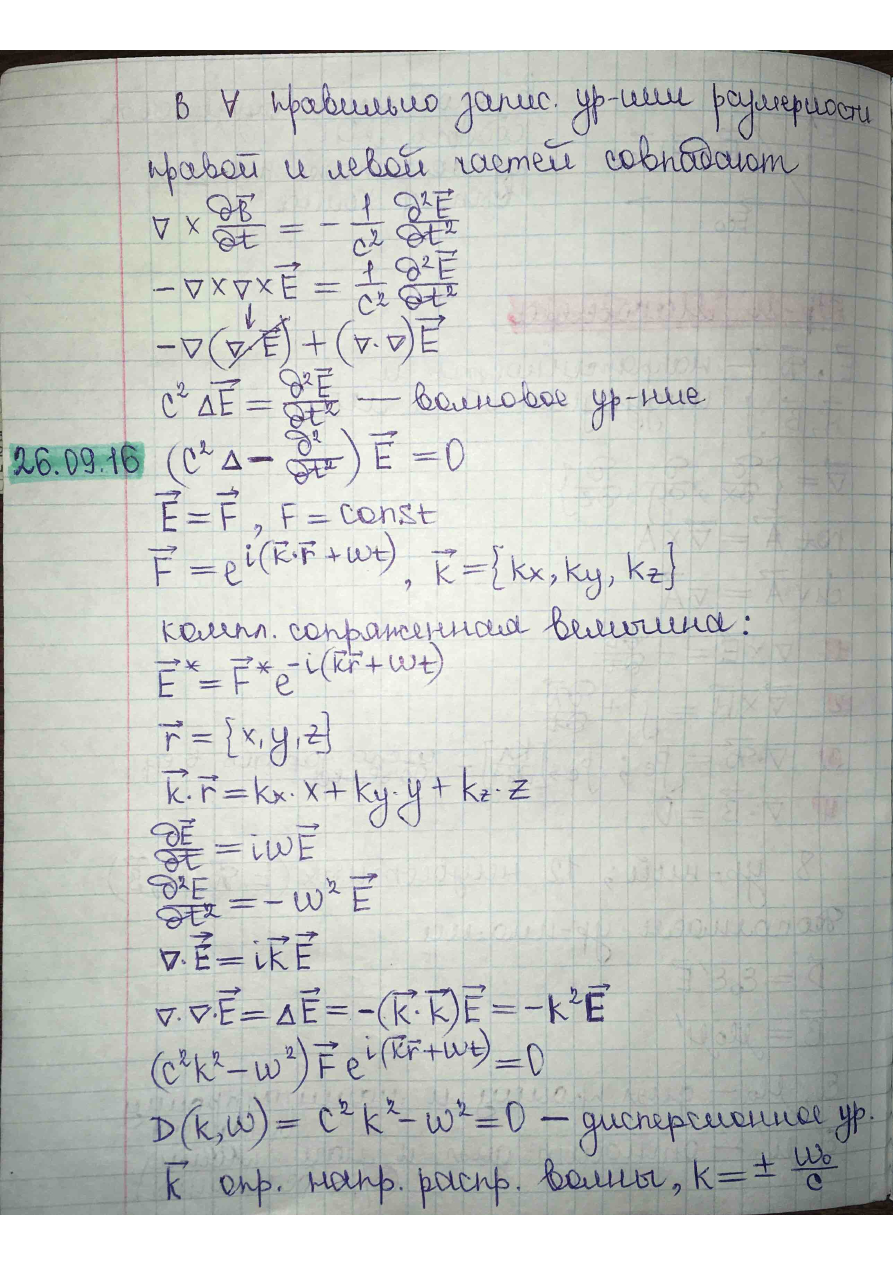 В ∀ правильно запис. ур-нии размерности
правой и левой частей совпадают
∇ × ∂B⃗/∂t = - 1/c² ∂²E⃗/∂t²
-∇×∇×E⃗ = 1/c² ∂²E⃗/∂t²
↓
-∇(∇·E⃗) + (∇·∇)E⃗
c² ΔE⃗ = ∂²E⃗/∂t² — волновое ур-ние
26.09.16 (c² Δ - ∂²/∂t²) E⃗ = 0
E⃗ = F⃗, F = const
F⃗ = e^{i(k⃗·r⃗ + wt)}, k⃗ = {kx, ky, kz}
компл. сопряженная величина:
E⃗* = F⃗* e^{-i(k⃗r⃗ + wt)}
r⃗ = {x, y, z}
k⃗·r⃗ = kx·x + ky·y + kz·z
∂E⃗/∂t = iwE⃗
∂²E/∂t² = -w² E⃗
∇·E⃗ = ik⃗E⃗
∇·∇·E⃗ = ΔE⃗ = -(k⃗·k⃗)E⃗ = -k²E⃗
(c²k² - w²) F⃗ e^{i(k⃗r⃗ + wt)} = 0
D(k,w) = c²k² - w² = 0 — дисперсионное ур.
k⃗ опр. напр. распр. волны, k = ± w₀/c